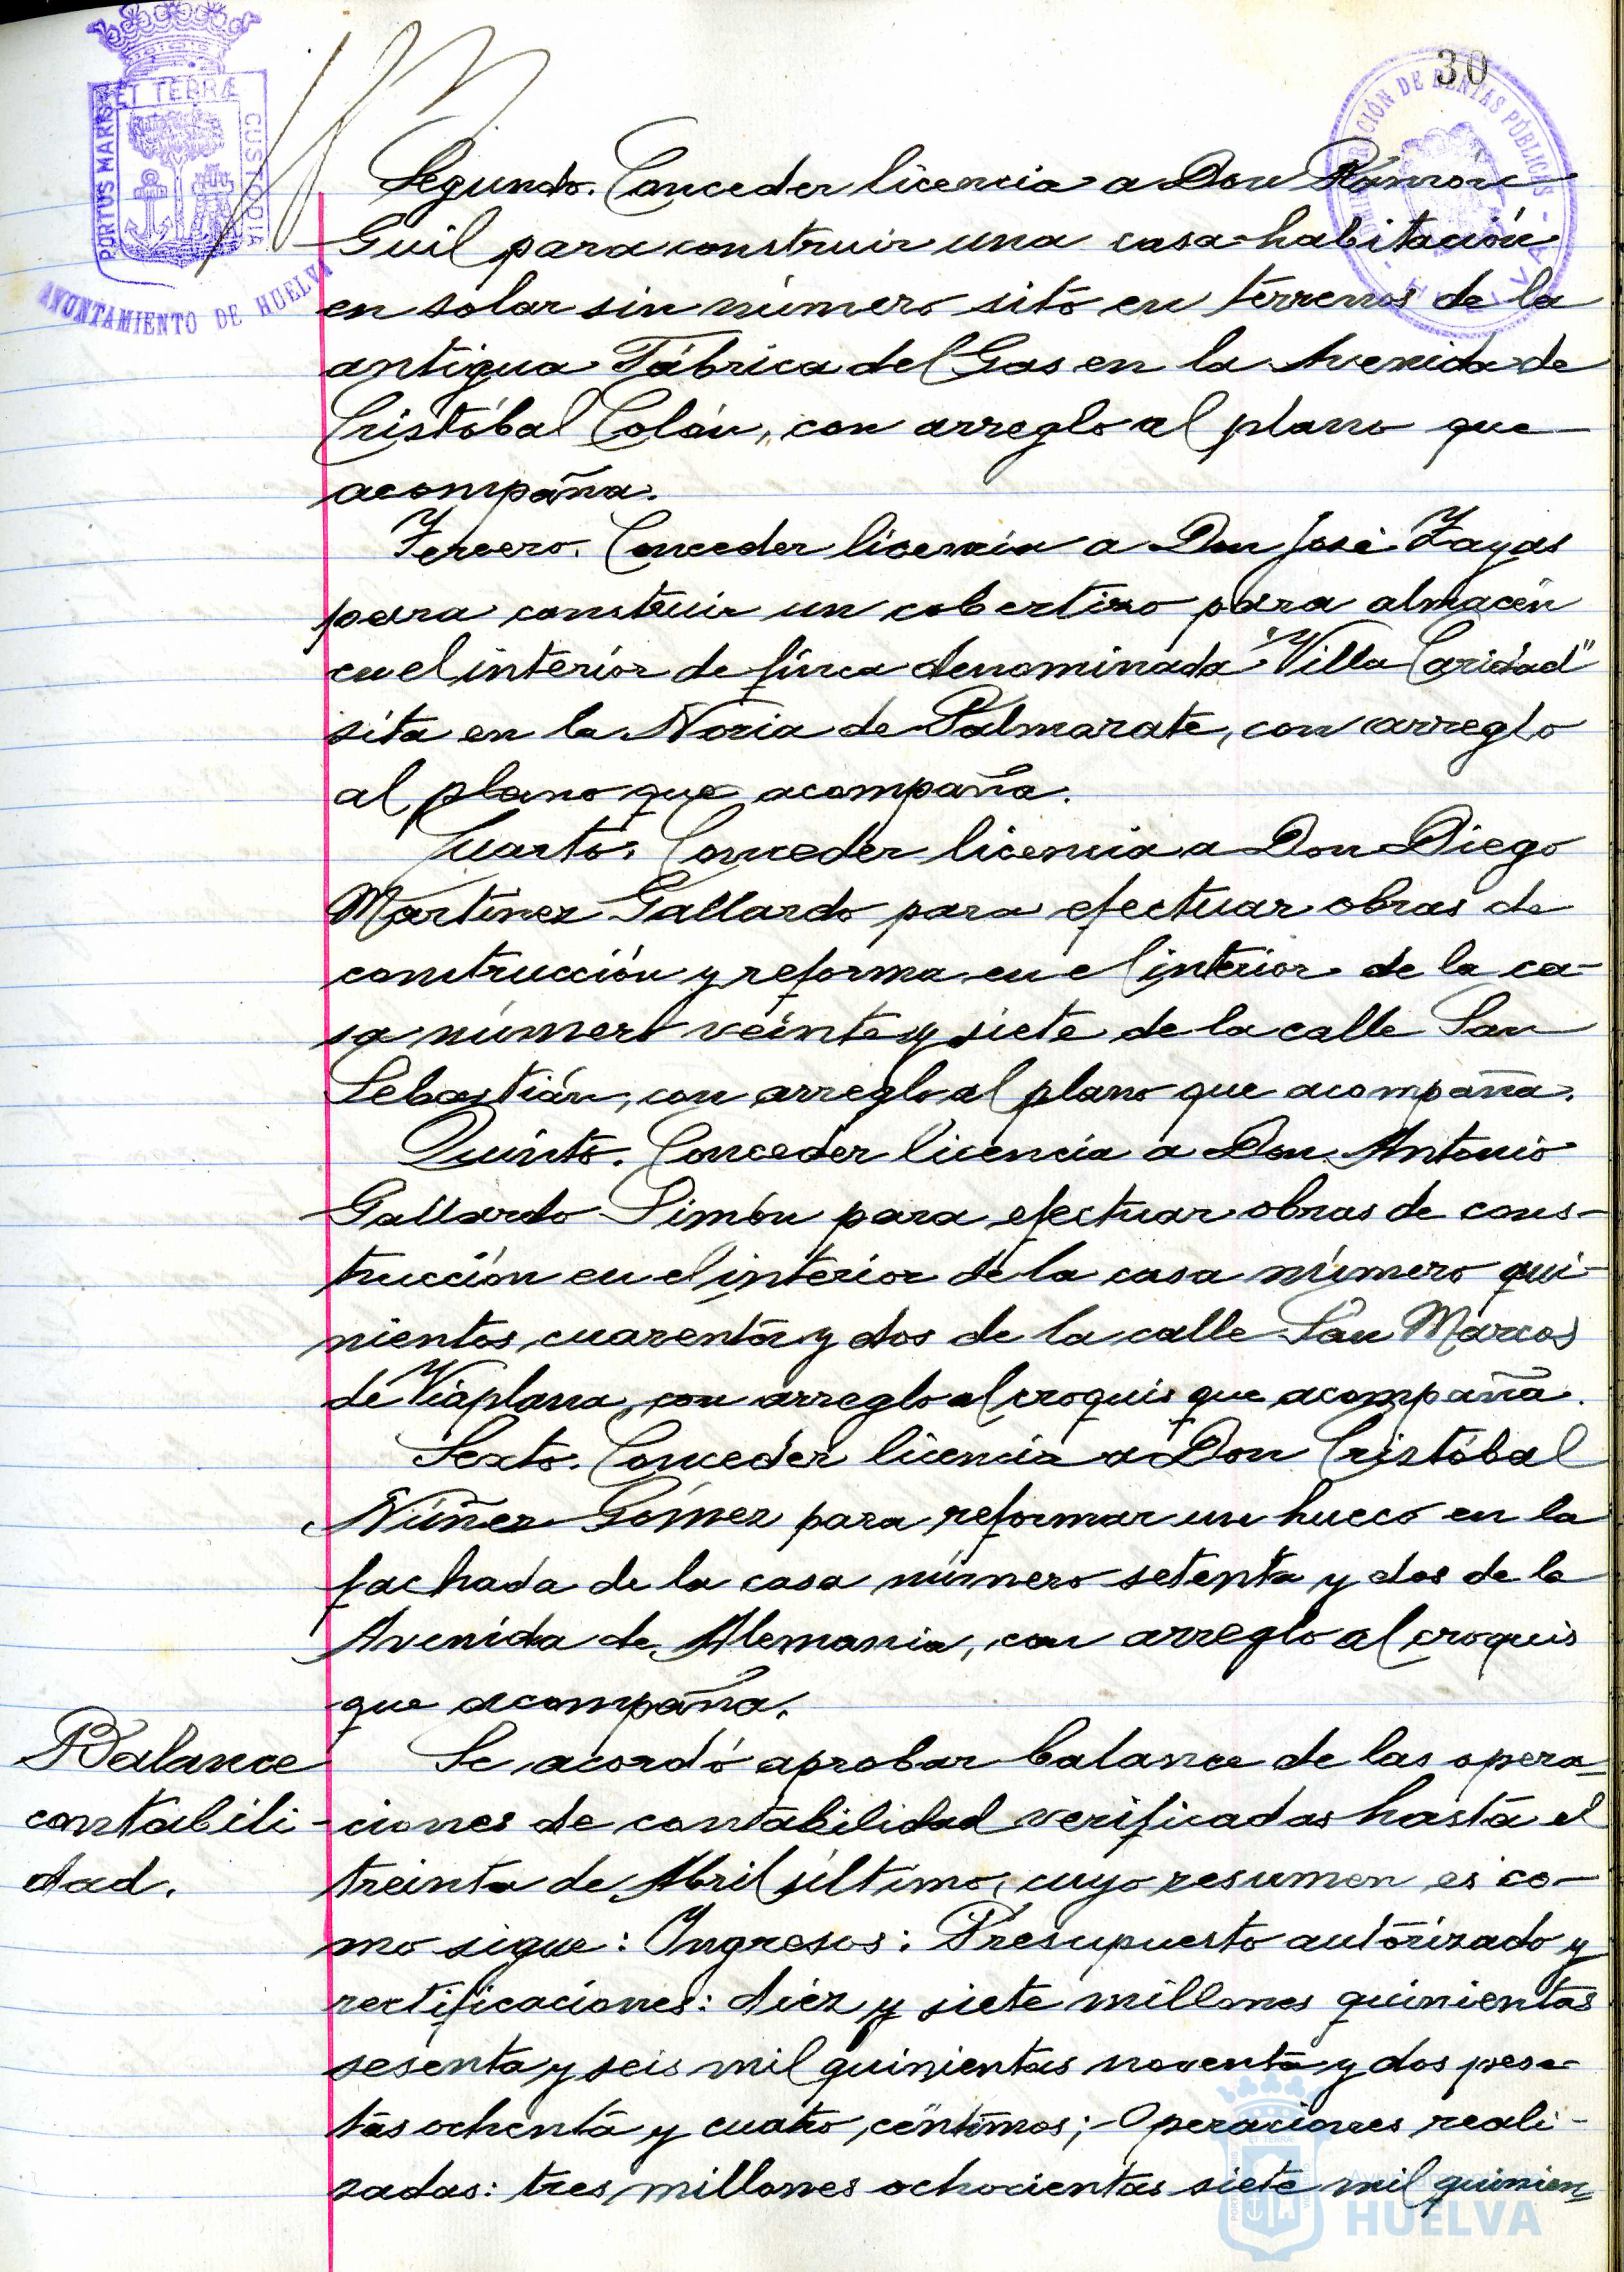 30
PORTUS MARIS ET TERRÆ CUSTODIA
AYUNTAMIENTO DE HUELVA
Segundo. Conceder licencia a Don Ramon
Guil para construir una casa-habitación
en solar sin número sito en terrenos de la
antigua Fábrica del Gas en la Avenida de
Cristóbal Colón, con arreglo al plano que
acompaña.
Tercero. Conceder licencia a Don José Zayas
para construir un cobertizo para almacén
en el interior de finca denominada "Villa Caridad"
sita en la Noria de Palmarate, con arreglo
al plano que acompaña.
Cuarto. Conceder licencia a Don Diego
Martinez Gallardo para efectuar obras de
construcción y reforma en el interior de la ca-
sa número veinte y siete de la calle San
Sebastián, con arreglo al plano que acompaña.
Quinto. Conceder licencia a Don Antonio
Gallardo Simón para efectuar obras de cons-
trucción en el interior de la casa número qui-
nientos cuarenta y dos de la calle San Marcos
de Viaplana, con arreglo al croquis que acompaña.
Sexto. Conceder licencia a Don Cristóbal
Núñez Gómez para reformar un hueco en la
fachada de la casa número setenta y dos de la
Avenida de Alemania, con arreglo al croquis
que acompaña.
Balance
contabili-
dad.
Se acordó aprobar balance de las opera-
ciones de contabilidad verificadas hasta el
treinta de Abril último, cuyo resumen es co-
mo sigue: Ingresos: Presupuesto autorizado y
rectificaciones: diez y siete millones quinientas
sesenta y seis mil quinientas noventa y dos pese-
tas ochenta y cuatro céntimos;- Operaciones reali-
zadas: tres millones ochocientas siete mil quinien-
HUELVA